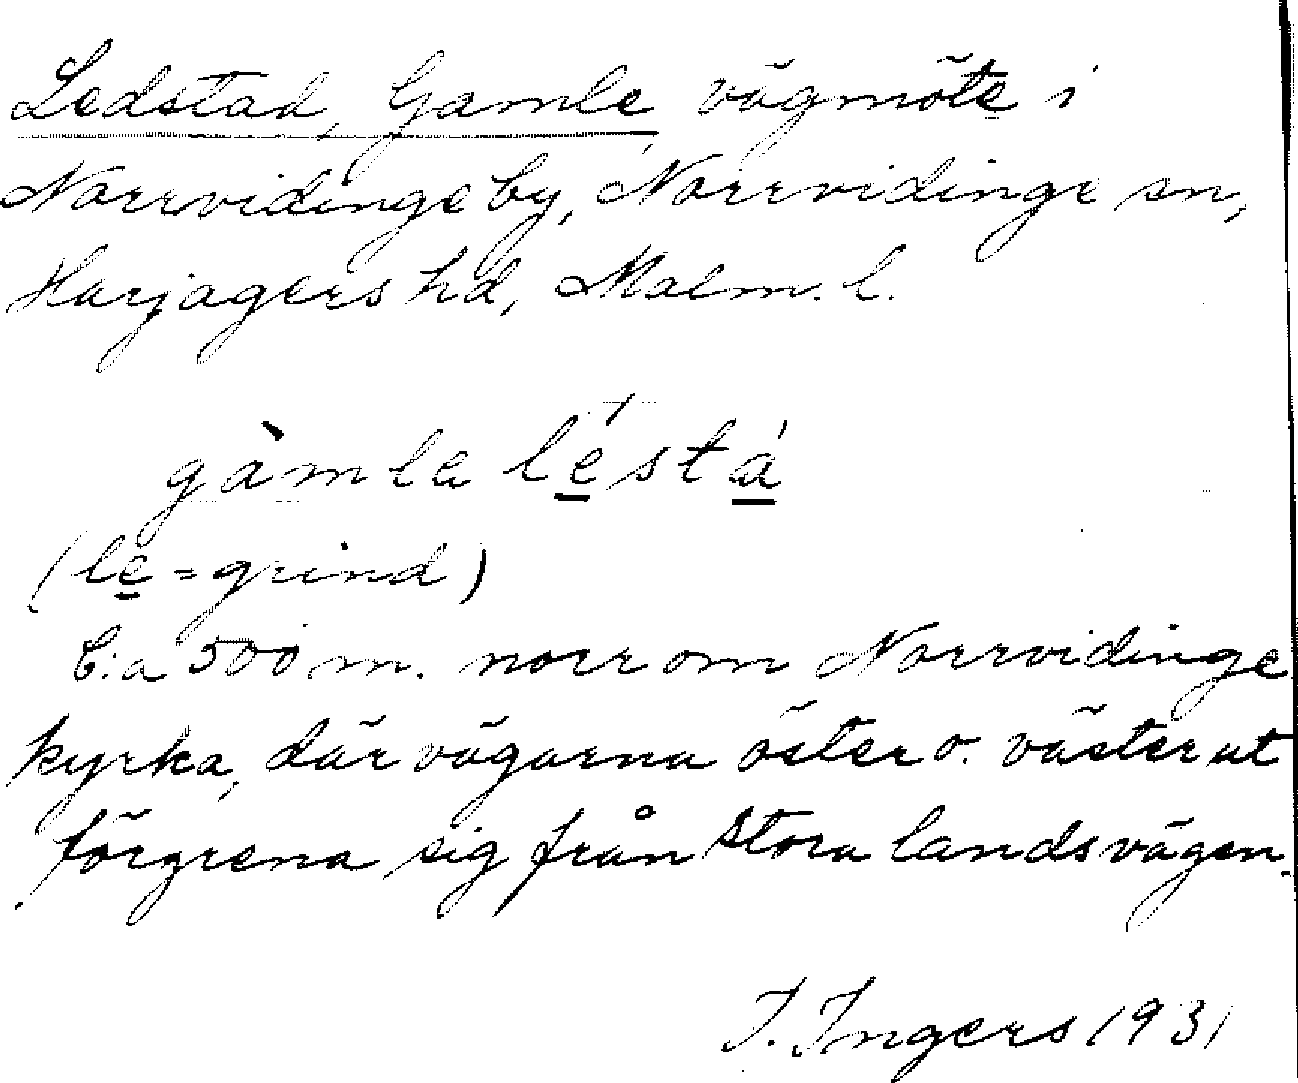 Ledstad, Gamle, vägmöte i
Norrvidinge by, Norrvidinge sn,
Harjagers hd, Malm. l.
gàmla léstá
(le = grind)
C:a 500 m. norr om Norrvidinge
kyrka, där vägarna öster o. västerut
förgrena sig från stora landsvägen.
I. Ingers 1931